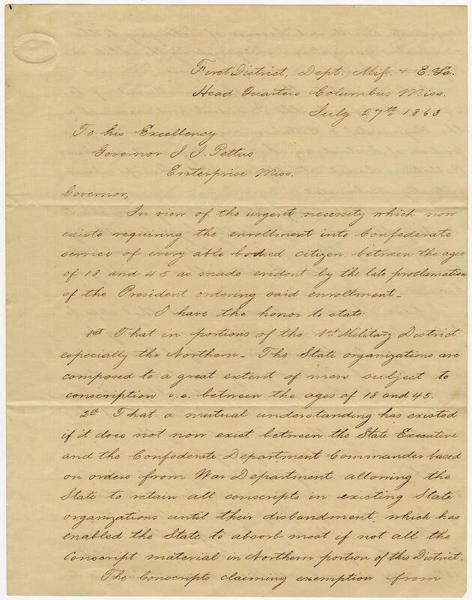 First District, Dept. Miss. & E. La.
Head Quarters Columbus Miss.
July 27th 1863
To his Excellency
Governor J. J. Pettus
Enterprise Miss.
Governor,
In view of the urgent necessity which now
exists requiring the enrollment into Confederate
service of every able bodied citizen between the ages
of 18 and 45 as made evident by the late proclamation
of the President ordering said enrollment—
I have the honor to state:
1st That in portions of the 1st Military District
especially the Northern— The State organizations are
composed to a great extent of men subject to
conscription i.e. between the ages of 18 and 45.
2d That a mutual understanding has existed
if it does not now exist between the State Executive
and the Confederate Department Commander based
on orders from War Department allowing the
State to retain all conscripts in existing State
organizations until their disbandment, which has
enabled the State to absorb most if not all the
Conscript material in Northern portion of this District.
The Conscripts claiming exemption from